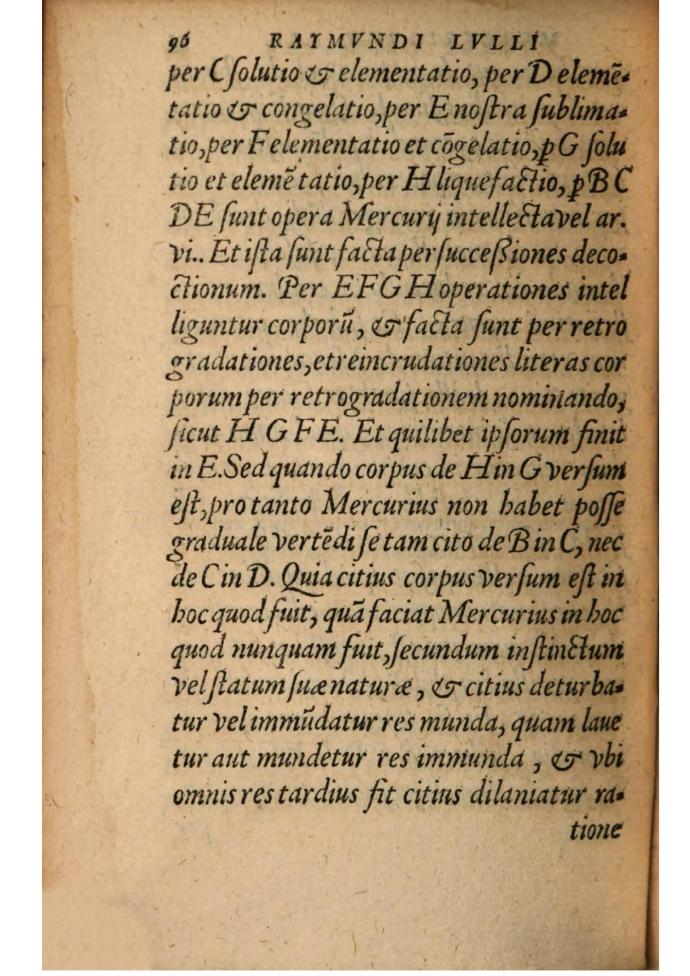 96 RAYMVNDI LVLLI
per C ſolutio & elementatio, per D elemē-
tatio & congelatio, per E noſtra ſublima-
tio, per F elementatio et cōgelatio, ꝑ G ſolu
tio et elemē tatio, per H liquefactio, ꝑ B C
D E ſunt opera Mercurij intellecta vel ar.
vi.. Et iſta ſunt facta per ſucceſsiones deco-
ctionum. Per E F G H operationes intel
liguntur corporū, & facta ſunt per retro
gradationes, et reincrudationes literas cor
porum per retrogradationem nominando,
ſicut H G F E. Et quilibet ipſorum finit
in E. Sed quando corpus de H in G verſum
eſt, pro tanto Mercurius non habet poſſe
graduale vertēdi ſe tam cito de B in C, nec
de C in D. Quia citius corpus verſum eſt in
hoc quod fuit, quā faciat Mercurius in hoc
quod nunquam fuit, ſecundum inſtinctum
vel ſtatum ſuæ naturæ, & citius deturba-
tur vel immūdatur res munda, quam laue
tur aut mundetur res immunda, & vbi
omnis res tardius fit citius dilaniatur ra-
tione